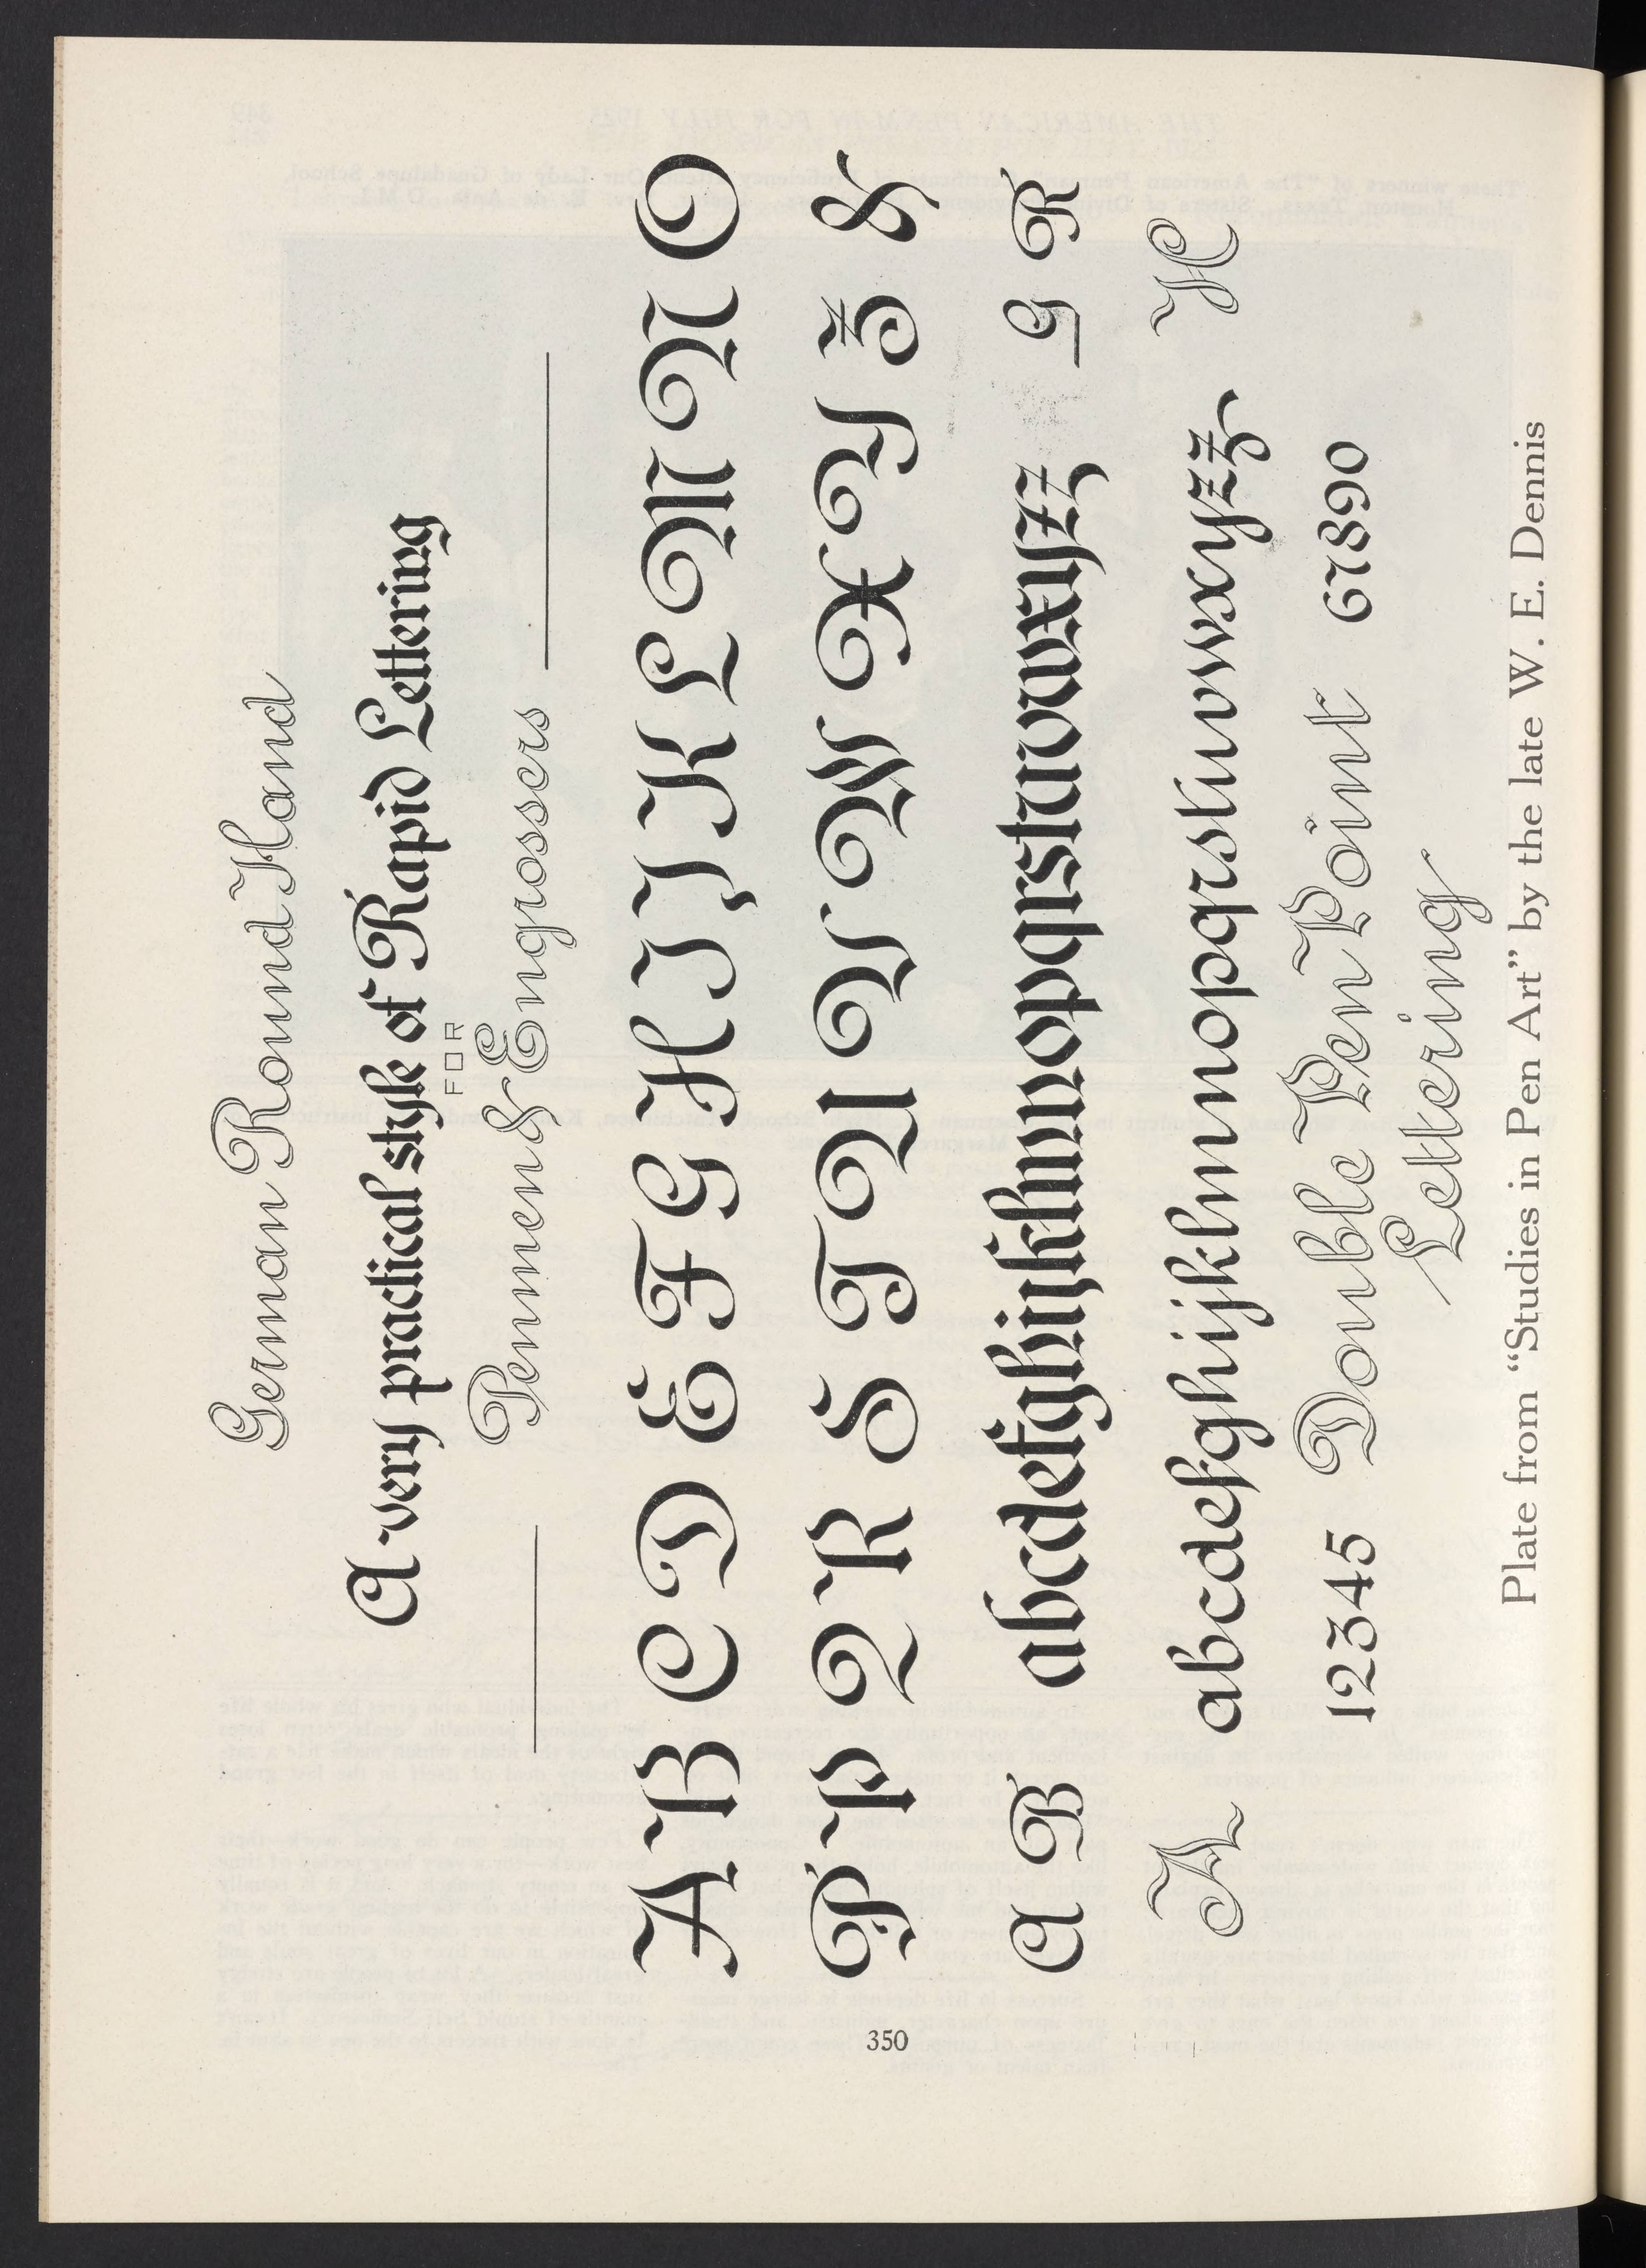 German Round Hand
A very practical style of Rapid Lettering
FOR
Penmen & Engrossers
A B C D E F G H I J K L M N O
P P Q R S T U V W X Y Z &
A B abcdefghijklmnopqrstuvwxyzz G R
A abcdefghijklmnopqrstuvwxyzz H
12345 Double Pen Point 67890
Lettering
Plate from “Studies in Pen Art” by the late W. E. Dennis
350